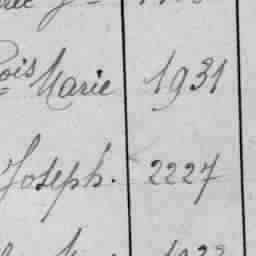 ois Marie 1931
Joseph. 2227